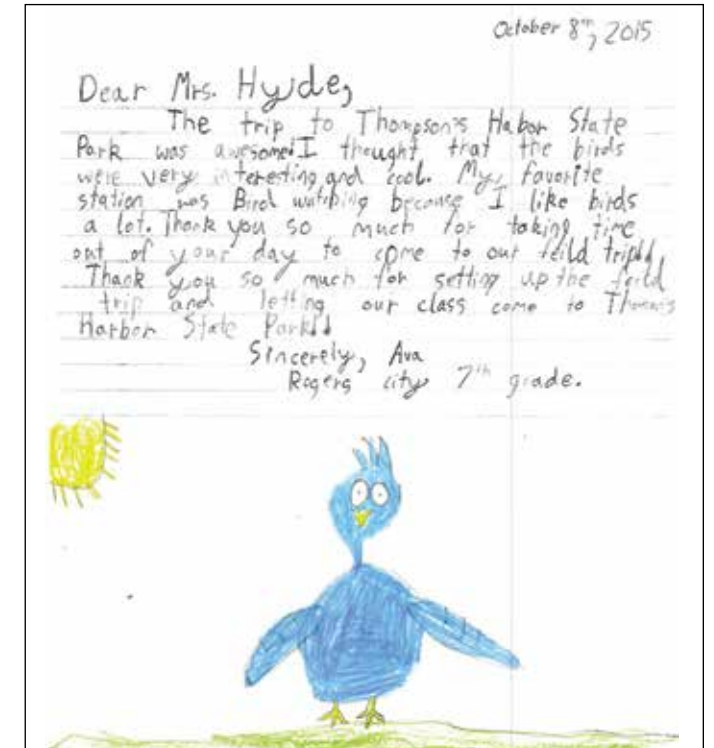 October 8th, 2015
Dear Mrs. Hyde,
The trip to Thompson's Habor State
Park was awesome! I thought that the birds
were very interesting and cool. My favorite
station was Bird watching because I like birds
a lot. Thank you so much for taking time
out of your day to come to our feild trip!!
Thank you so much for setting up the feild
trip and letting our class come to
Harbor State Park!!
Sincerely, Ava
Rogers city 7th grade.